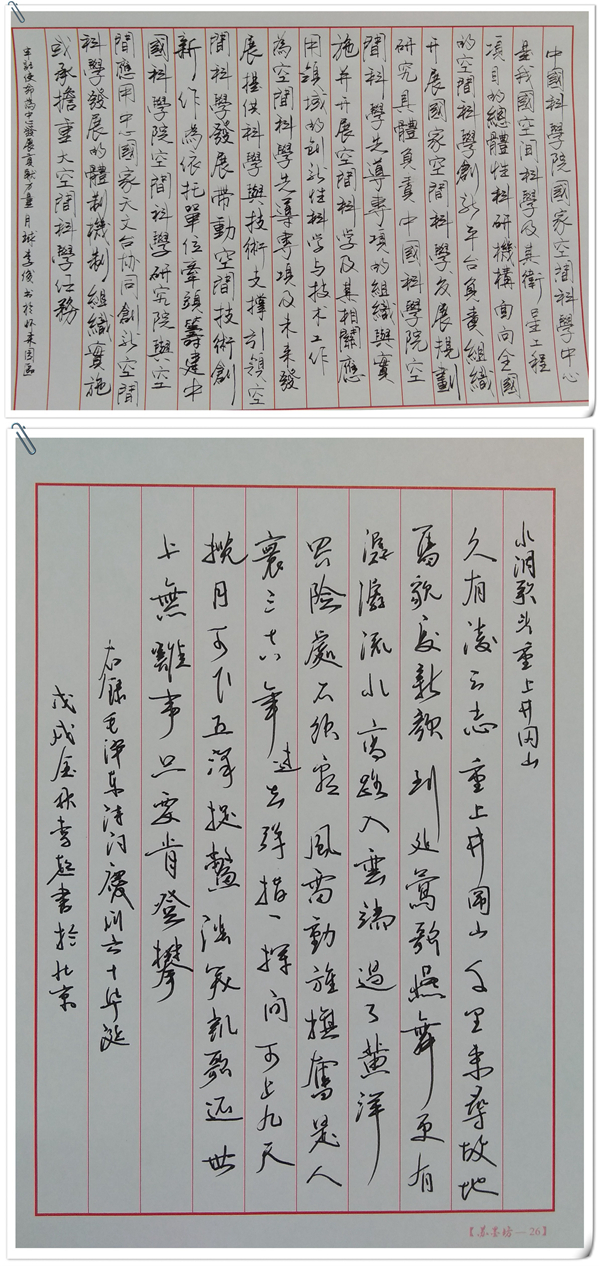 中國科學院國家空間科學中心
是我國空间科學及其衛星工程
項目的總體性科研機構面向全國
的空間科學創新平台負責組織
开展國家空間科學发展規劃
研究具體負責中國科學院空
間科學先導專項的組織與實
施并开展空间科学及其相關應
用領域的创新性科学与技术工作
為空間科學先導專項及未来發
展提供科學與技術支撑引領空
間科學發展帶動空間技術創
新作為依托單位牽頭籌建中
國科學院空間科學研究院與空
間應用中心國家天文台协同創新空間
科學發展的體制機制組織實施
或承擔重大空間科學任務
牢記使命為中心發展貢献力量 书於怀柔园区
水调歌头重上井冈山
久有凌云志重上井岡山千里来尋故地
舊貌变新颜到处鶯歌燕舞更有
潺潺流水高路入雲端過了黄洋
界險處不须看風雷動旌旗奮是人
寰三十八年過去彈指一揮间可上九天
揽月可下五洋捉鳖談笑凱歌还世
上無難事只要肯登攀
右録毛泽东诗词慶川六十华誕
戊戌金秋李超書於北京
【苏墨坊—26】